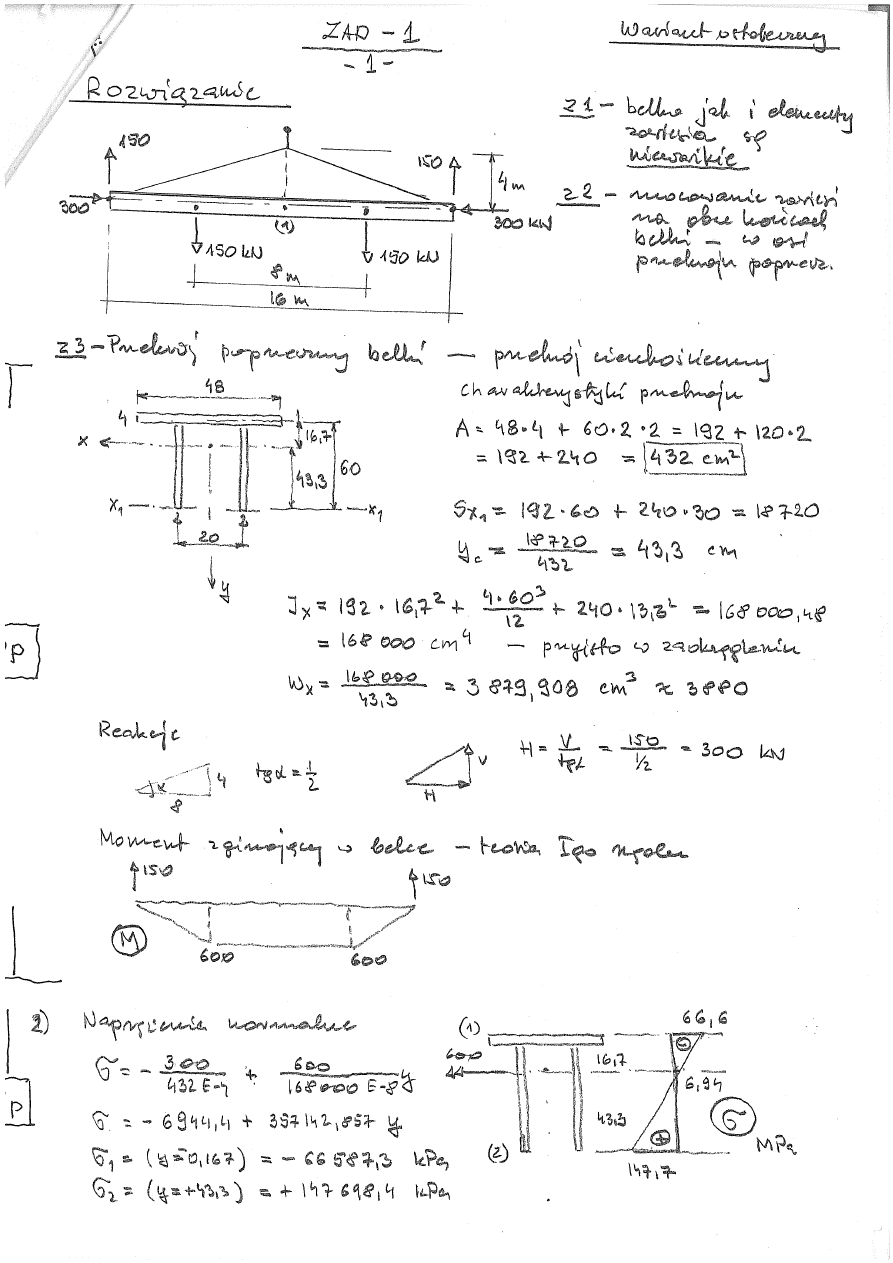 ZAD - 1
- 1 -
Wariant ostateczny
Rozwiązanie
z1 - belka jak i elementy
zawiesia są
nieważkie
z2 - mocowanie zawiesi
na obu końcach
belki - w osi
przekroju poprzecz.
150
150
4 m
300
(1)
300 kN
150 kN
150 kN
8 m
16 m
z3 - Przekrój poprzeczny belki - przekrój cienkościenny
48
4
16,7
x
43,3
60
x1
x1
2
2
20
y
charakterystyki przekroju
A = 48·4 + 60·2·2 = 192 + 120·2
= 192 + 240 = 432 cm²
Sx1 = 192·60 + 240·30 = 18720
yc = 18720/432 = 43,3 cm
Jx = 192·16,7² + 4·60³/12 + 240·13,3² = 168 000,48
= 168 000 cm⁴ - przyjęto w zaokrągleniu
Wx = 168 000/43,3 = 3 879,908 cm³ ≈ 3880
P
Reakcje
α
4
8
tgα = 1/2
V
H
H = V/tgα = 150/1/2 = 300 kN
Moment zginający w belce - teoria Igo rzędu
150
150
M
600
600
2) Naprężenia normalne
σ = - 300/432 E-4 + 600/168000 E-8 y
σ = - 6944,4 + 357142,857 y
σ1 = (y=0,167) = - 66 587,3 kPa
σ2 = (y=+43,3) = + 147 698,4 kPa
P
(1)
66,6
600
16,7
6,94
43,3
σ
(2)
MPa
147,7